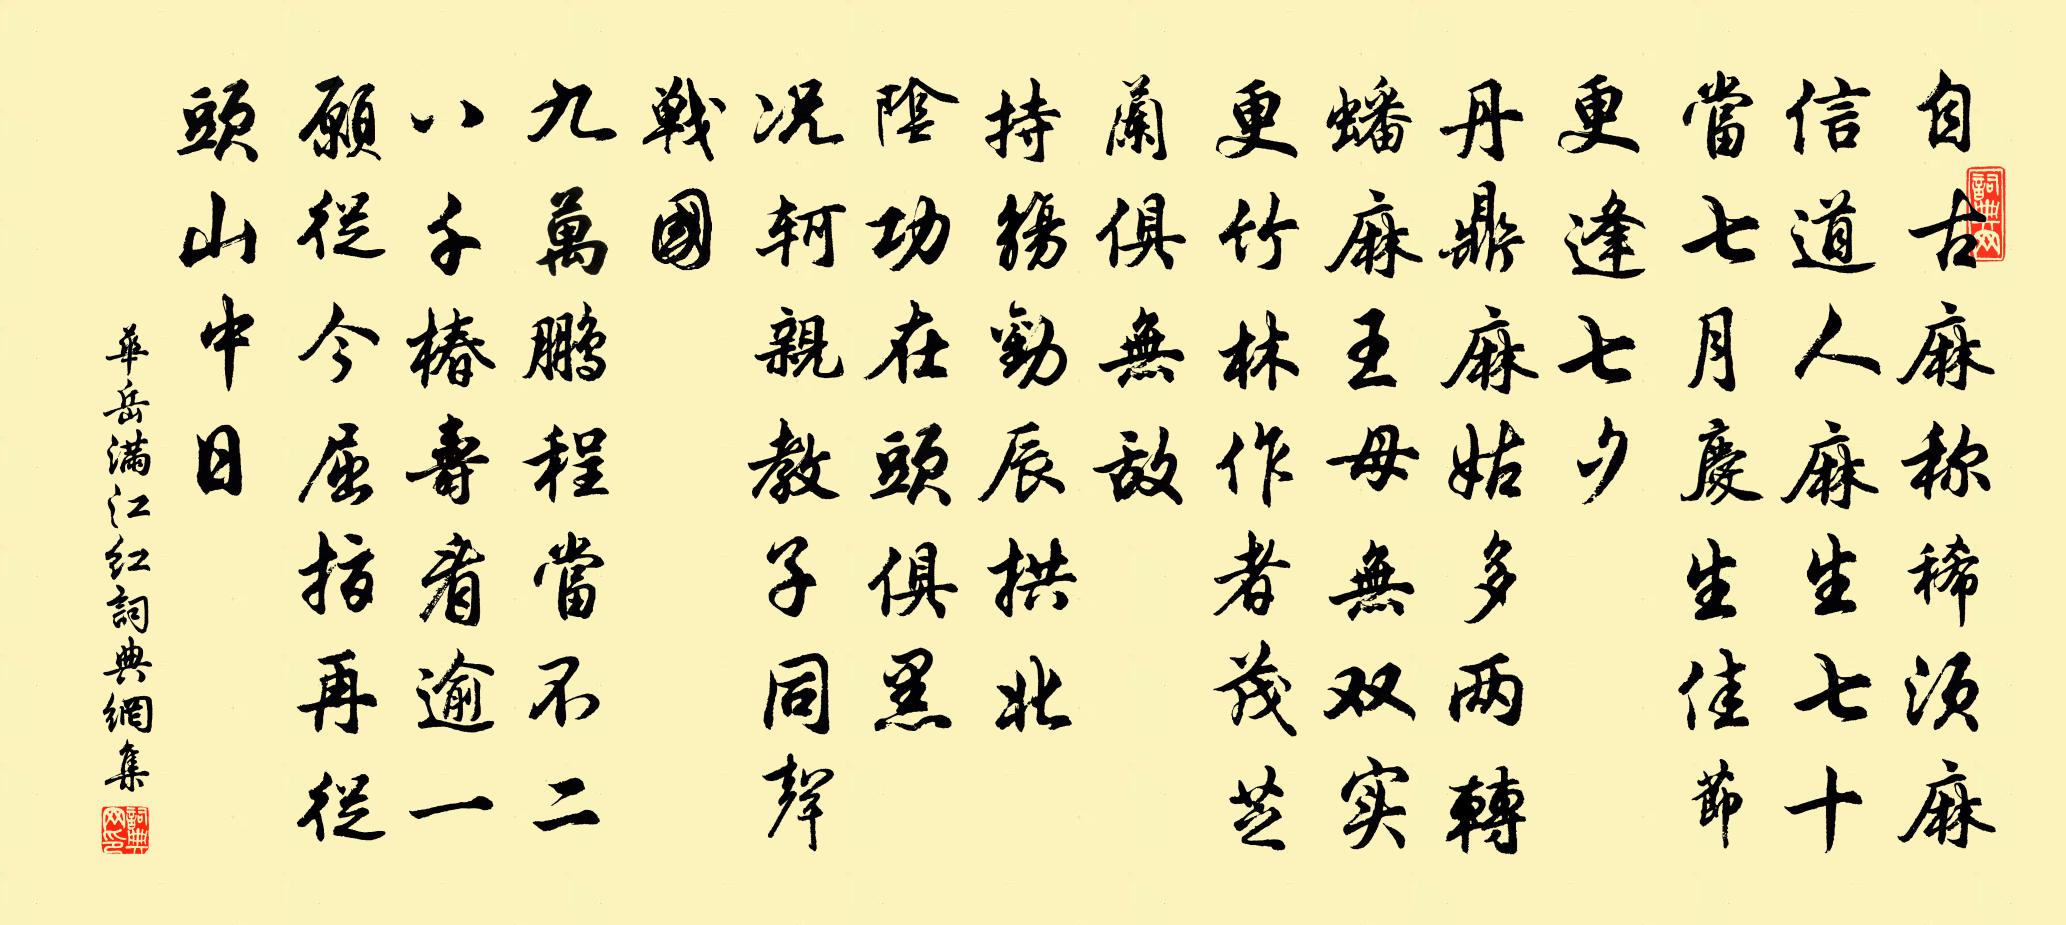 自古麻称稀须麻
信道人麻生七十
當七月慶生佳節
更逢七夕
丹鼎麻姑多两轉
蟠麻王母無双实
更竹林作者茂芝
蘭俱無敌
持觴勸辰拱北
陰功在頭俱黑
况轲親教子同聲
戦國
九萬鹏程當不二
八千椿壽看逾一
願從今屈指再從
頭山中日
華岳满江红詞典網集
詞典网
詞典网印